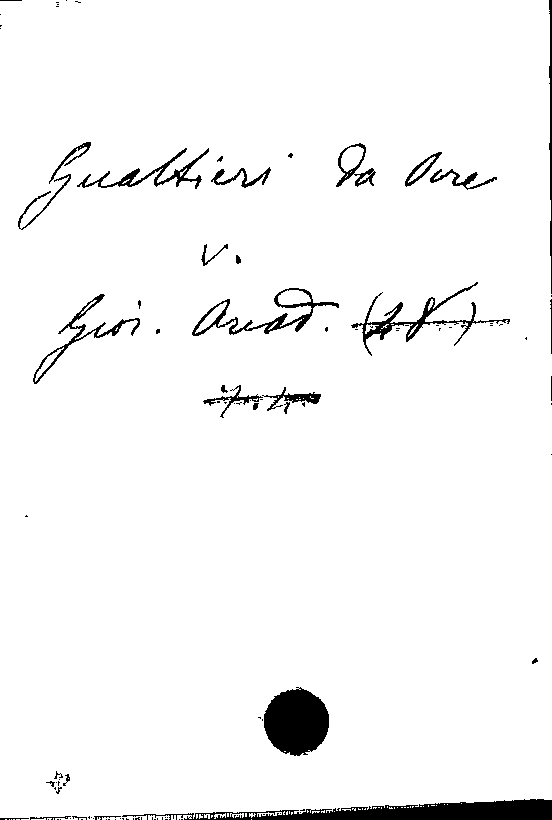 Gualtieri da
v.
Gior. Arcad. (28)
7.4.